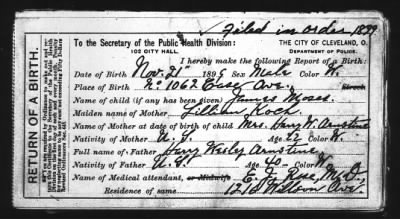 Filed in order 1899
To the Secretary of the Public Health Division:
THE CITY OF CLEVELAND, O.
102 CITY HALL.
DEPARTMENT OF POLICE.
I hereby make the following Report of a Birth:
Date of Birth Nov. 21" 189 Sex Male Color W.
Place of Birth No 1062 Ave. Street
Name of child (if any has been given) James Moses.
Maiden name of Mother Lillian Koch
Name of Mother at date of birth of child Mrs. Harry W. Armstine
Nativity of Mother U.S. Age 22 Color W.
Full name of Father Harry Wesley Armstine
Nativity of Father U.S. Age 40 Color W.
Name of Medical attendant, or Midwife E. J. M.D.
Residence of same 1216 Willson Ave.
RETURN OF A BIRTH.